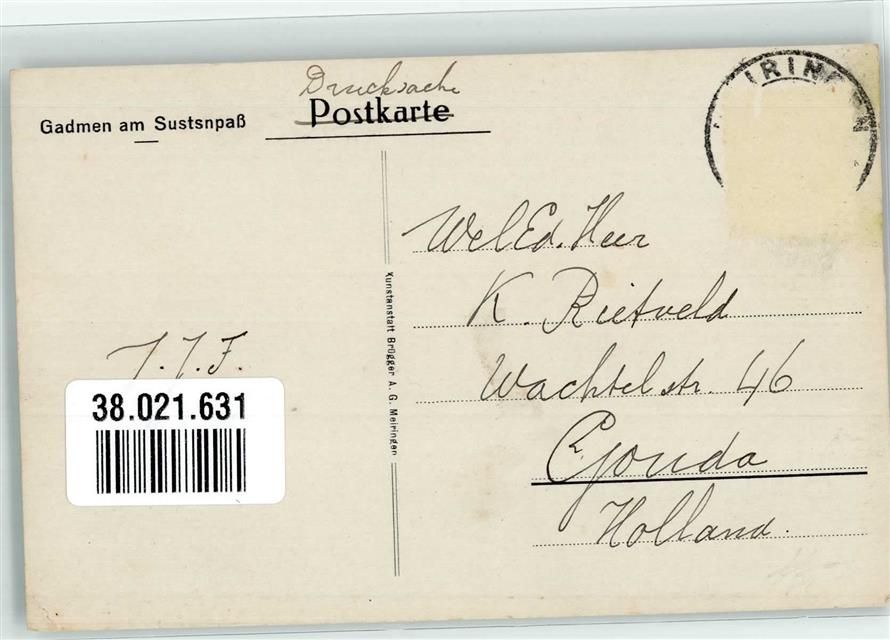 Drucksache
Postkarte
Gadmen am Sustsnpaß
IRINGE
WelEd. Heer
K. Rietveld
Wachtelstr. 46
Gouda
Holland.
J. J. F.
Kunstanstalt Brügger A. G. Meiringen
38.021.631